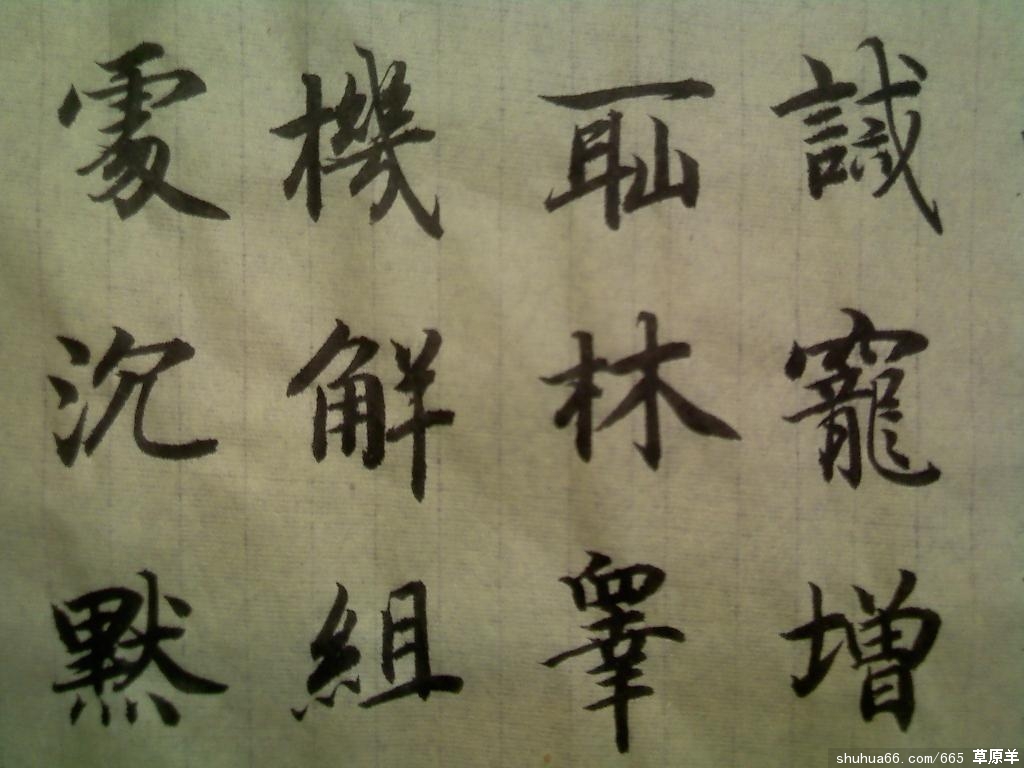 誡寵增
耻林睾
機解組
處沉黙
shuhua66.com/665 草原羊